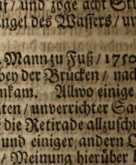 auf / und zoge acht St
Engel des Wassers / un
Mann zu Fuß / 1750
ben der Brücken / nac
nkam. Allwo einige
ten / unverrichter Sa
die Retirade allzuschi
und einiger andern
/ Meinung hierüber